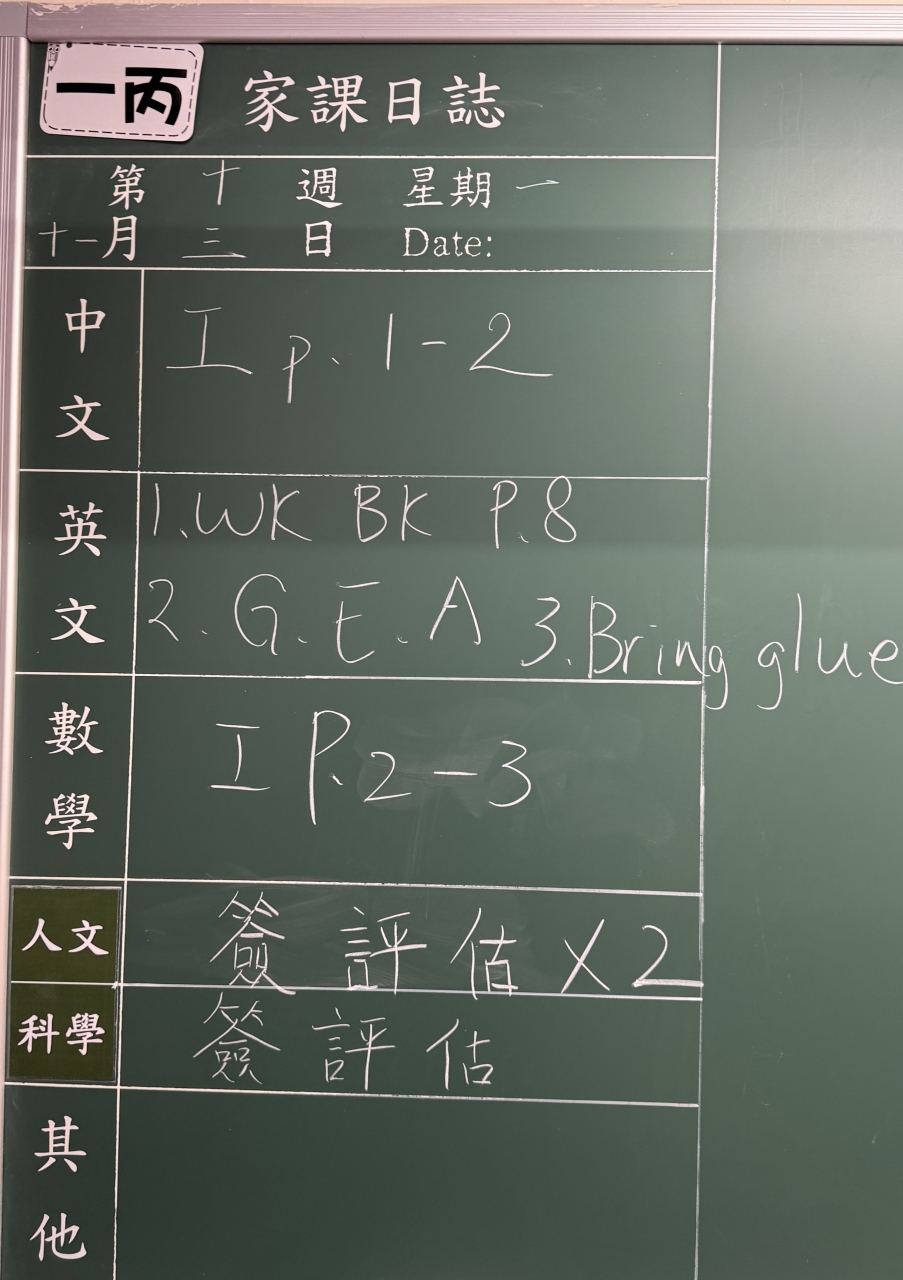 一丙 家課日誌
第 十 週 星期 一
十一月 三 日 Date:
中文 工 p. 1-2
英文 1. WK BK P.8
2. G.E.A 3. Bring glue
數學 工 P.2-3
人文 簽 評 估 X2
科學 簽 評 估
其他